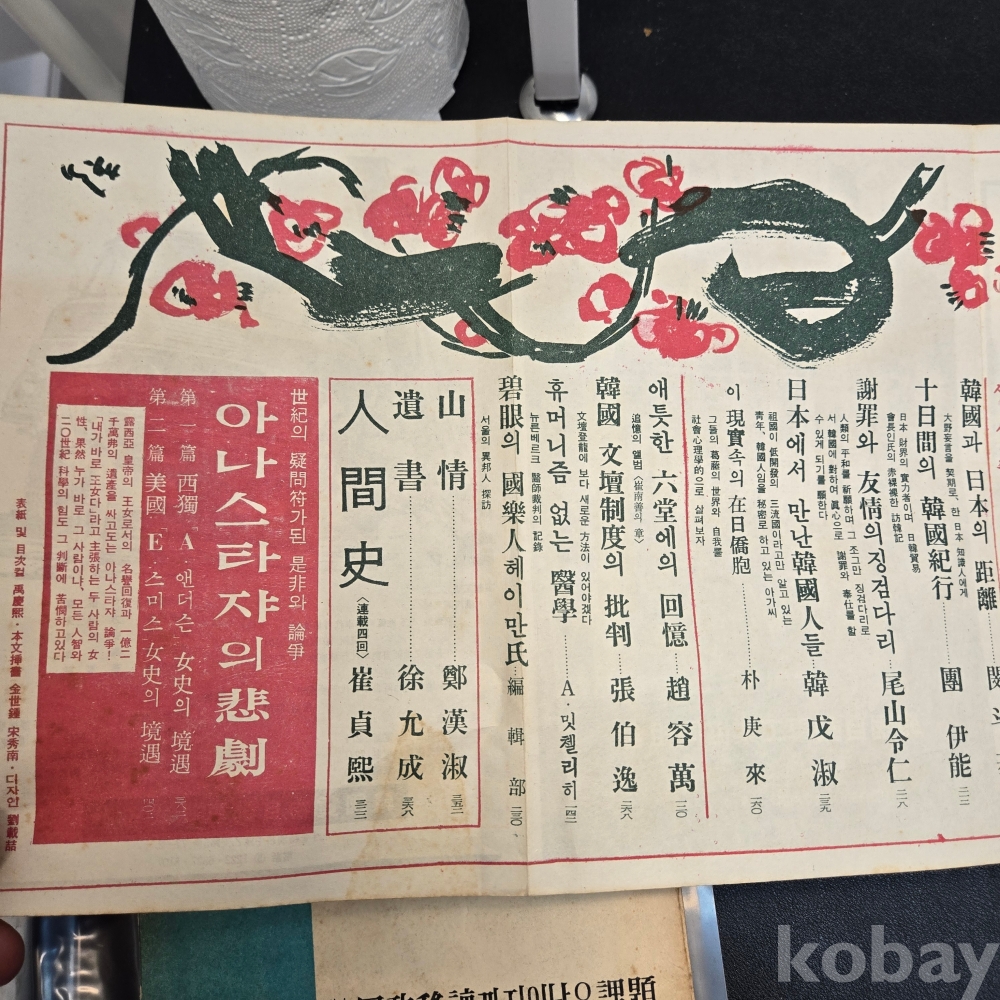 韓國과 日本의 距離
大野妄言을 契期로、한 日本 知識人에게
十日間의 韓國紀行……團 伊能 二一二
日本 財界의 實力者이며 日韓貿易
會長인 氏의 赤裸裸한 訪韓記
謝罪와 友情의 징검다리…尾山令仁 二一八
人類의 平和를 祈願하며 그 조그만 징검다리로
서 韓國에 對하여 眞心으로 謝罪와 奉仕를 할
수 있게 되기를 願한다
日本에서 만난 韓國人들…韓戊淑 二三九
祖國이 低開發의 三流國이라고만 알고 있는
靑年、韓國人임을 秘密로 하고 있는 아가씨
이 現實속의 在日僑胞……朴庚來 一六〇
그들의 葛藤의 世界와 自我를
社會心理學的으로 살펴보자
애틋한 六堂에의 回憶…趙容萬 一三〇
追憶의 앨범 〈崔南善의 章〉
韓國 文壇制度의 批判…張伯逸 二六八
文壇登龍에 보다 새로운 方法이 있어야겠다
휴머니즘 없는 醫學……A·밋첼리히 一四二
뉴른베르크 醫師裁判의 記錄
碧眼의 國樂人 헤이만氏…編輯部 二三〇
서울의 異邦人 探訪
山情……鄭漢淑 三五二
遺書……徐允成 三六八
人間史〈連載四回〉崔貞熙 三三二
世紀의 疑問符가 된 是非와 論爭
아나스타쟈의 悲劇
第一篇 西獨「A·앤더슨」女史의 境遇 三八〇
第二篇 美國「E·스미스」女史의 境遇 四〇三
露西亞 皇帝의 王女로서의 名譽回復과 一億二
千萬弗의 遺產을 싸고도는 아나스타쟈 論爭!
「내가 바로 王女다」라고 主張하는 두 사람의 女
性、果然 누가 바로 그 사람이냐、모든 人智와
二〇世紀 科學의 힘도 그 判斷에 苦憫하고있다
表紙 및 目次컽 禹慶熙·本文揷畵 金世鍾 宋秀南·디자인 劉載喆
kobay